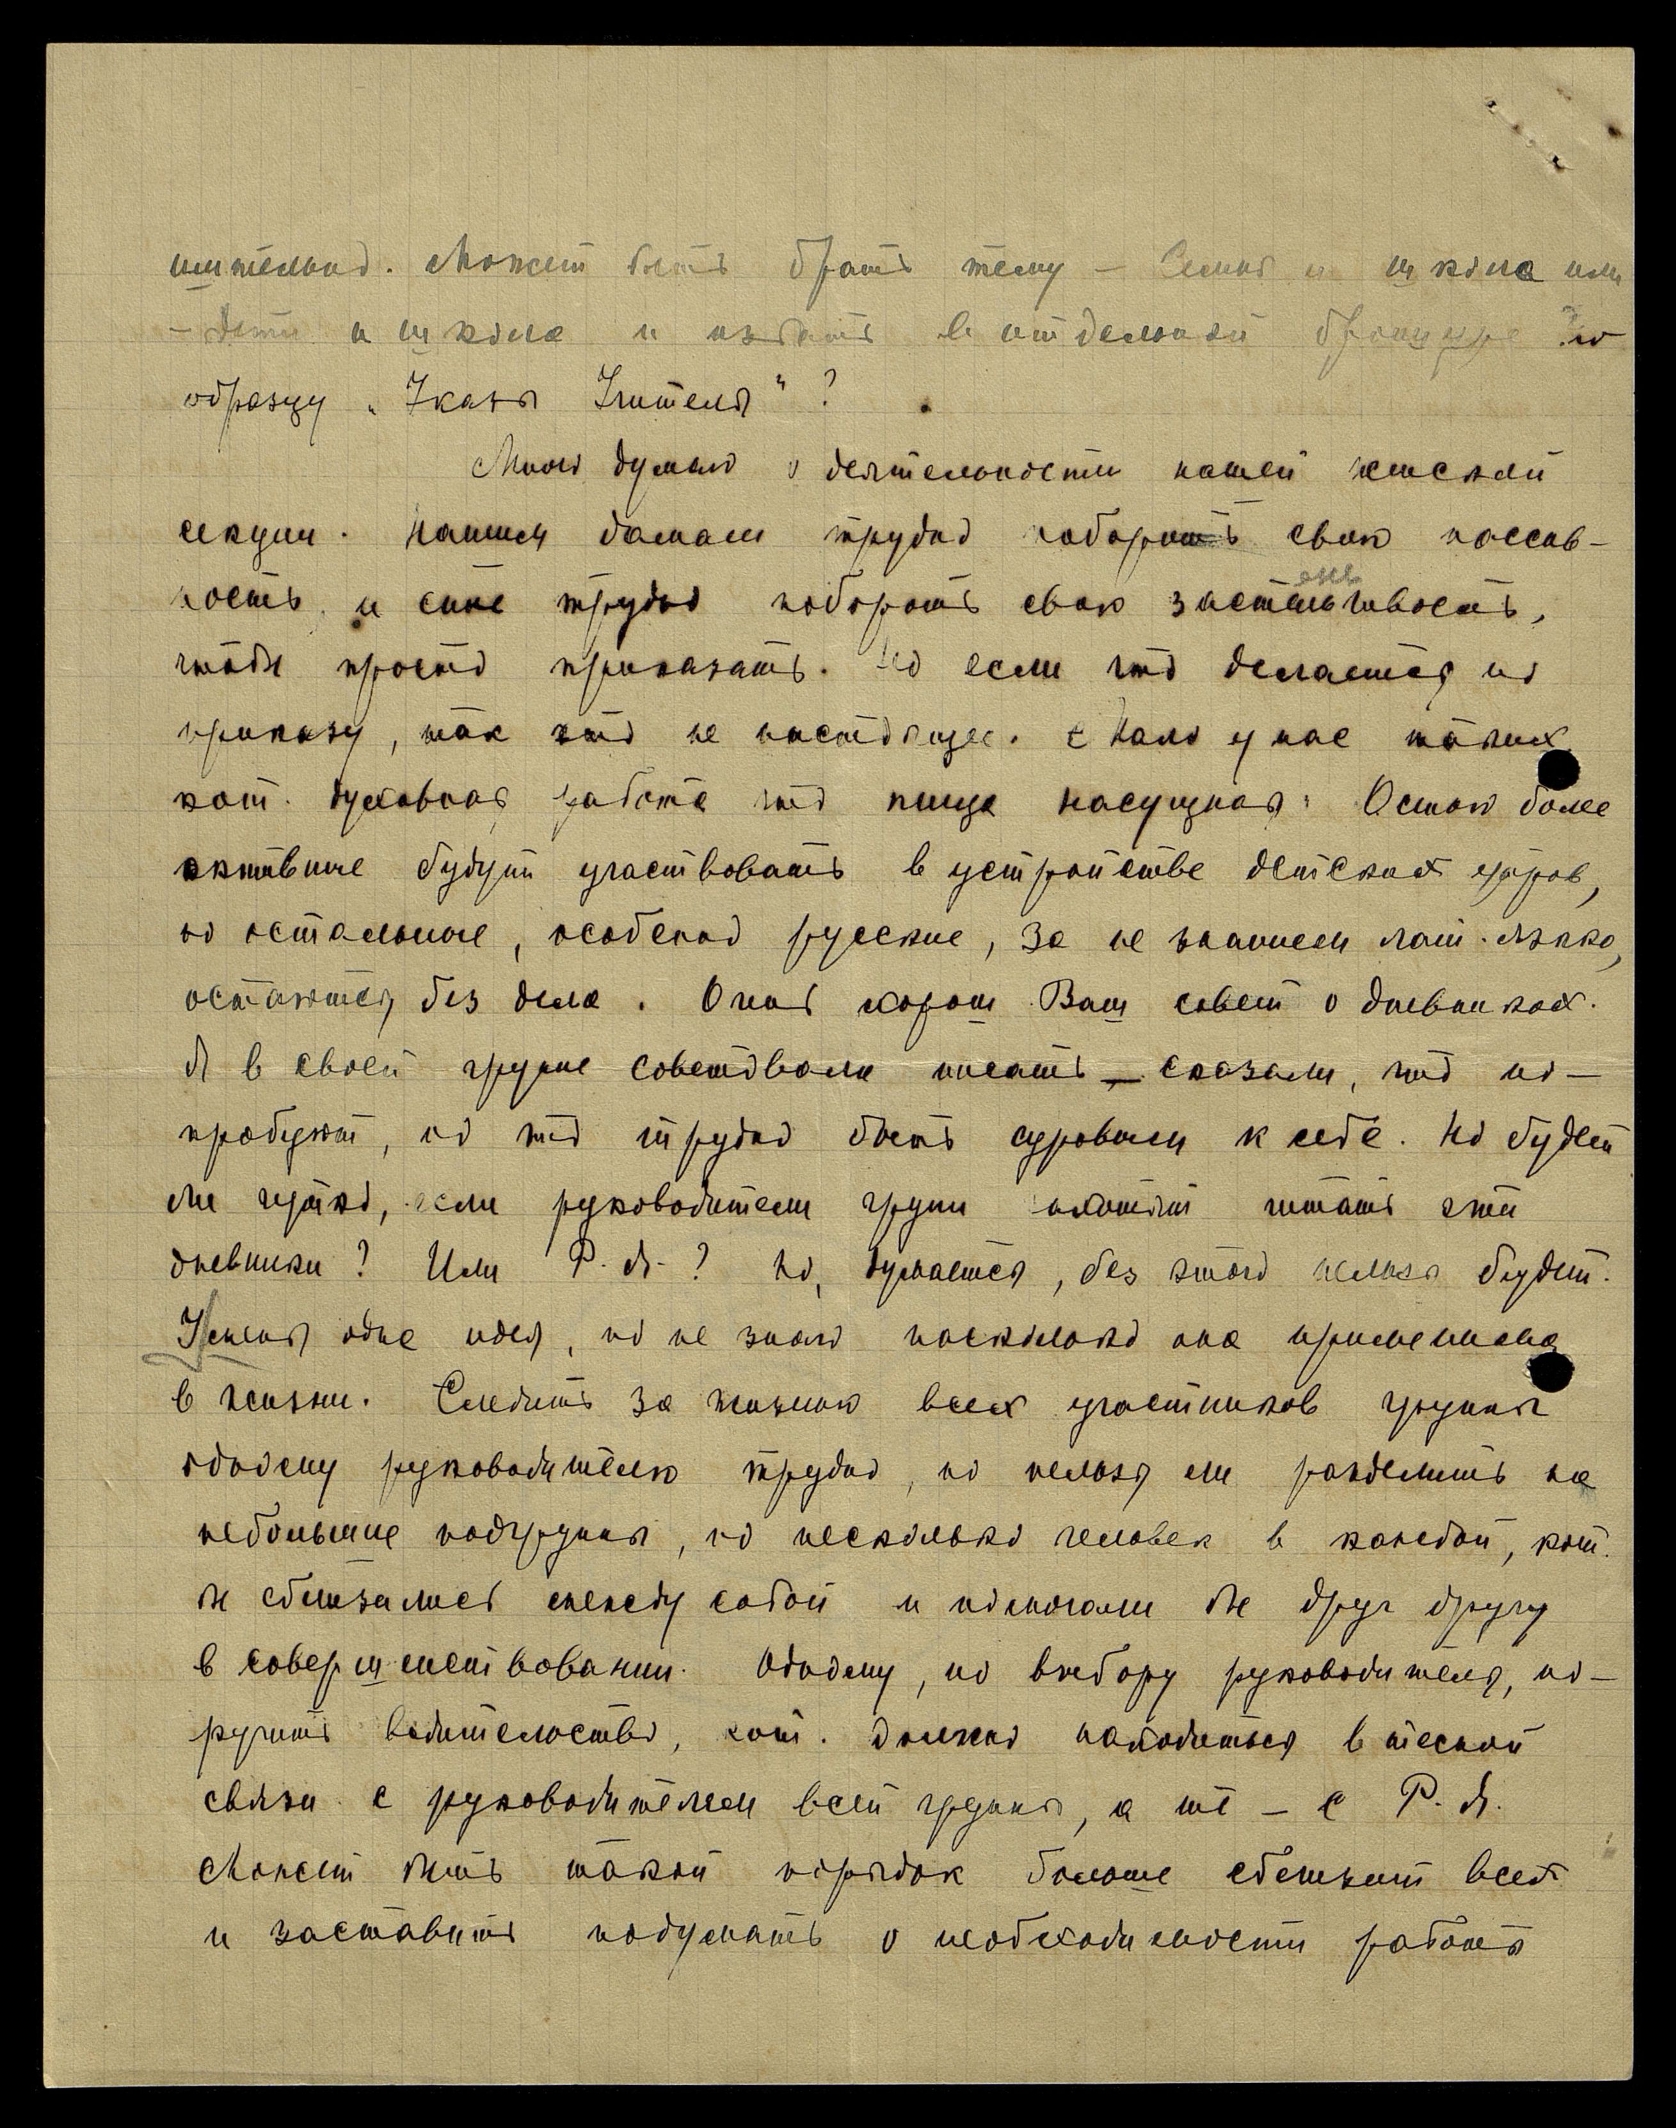 шительно. Может быть брать тему – Семья и школа или
– дети и школа и издать в отдельной брошюре по
образцу „Указы Учителя"?
Много думаю о деятельности нашей женской
секции. Нашим дамам трудно побороть свою пассив–
ность, и мне трудно побороть свою застенчивость,
чтобы просто приказать. Но если что делается по
приказу, так это не настоящее. Мало у нас таких
кот. духовная работа что пища насущная. Самые более
активные будут участвовать в устройстве детских утров,
но остальные, особенно русские, за не знанием лат. языка,
остаются без дела. Очень хорош Ваш совет о дневниках.
Я в своей группе советовала писать – сказали, что по–
пробуют, но что трудно быть суровыми к себе. Но будет
ли чутко, если руководители групп захотят читать эти
дневники? Или Р. Я.? Но, думается, без этого нельзя будет.
У меня одна идея, но не знаю насколько она применима
в жизни. Следить за жизнью всех участников группы
одному руководителю трудно, но нельзя ли разделить на
небольшие подгруппы, по несколько человек в каждой, кот.
бы сблизились между собой и помогали бы друг другу
в совершенствовании. Одному, по выбору руководителя, по–
ручить водительство, кот. должно находиться в тесной
связи с руководителем всей группы, а те – с Р. Я.
Может быть такой порядок больше сблизит всех
и заставить подумать о необходимости работы